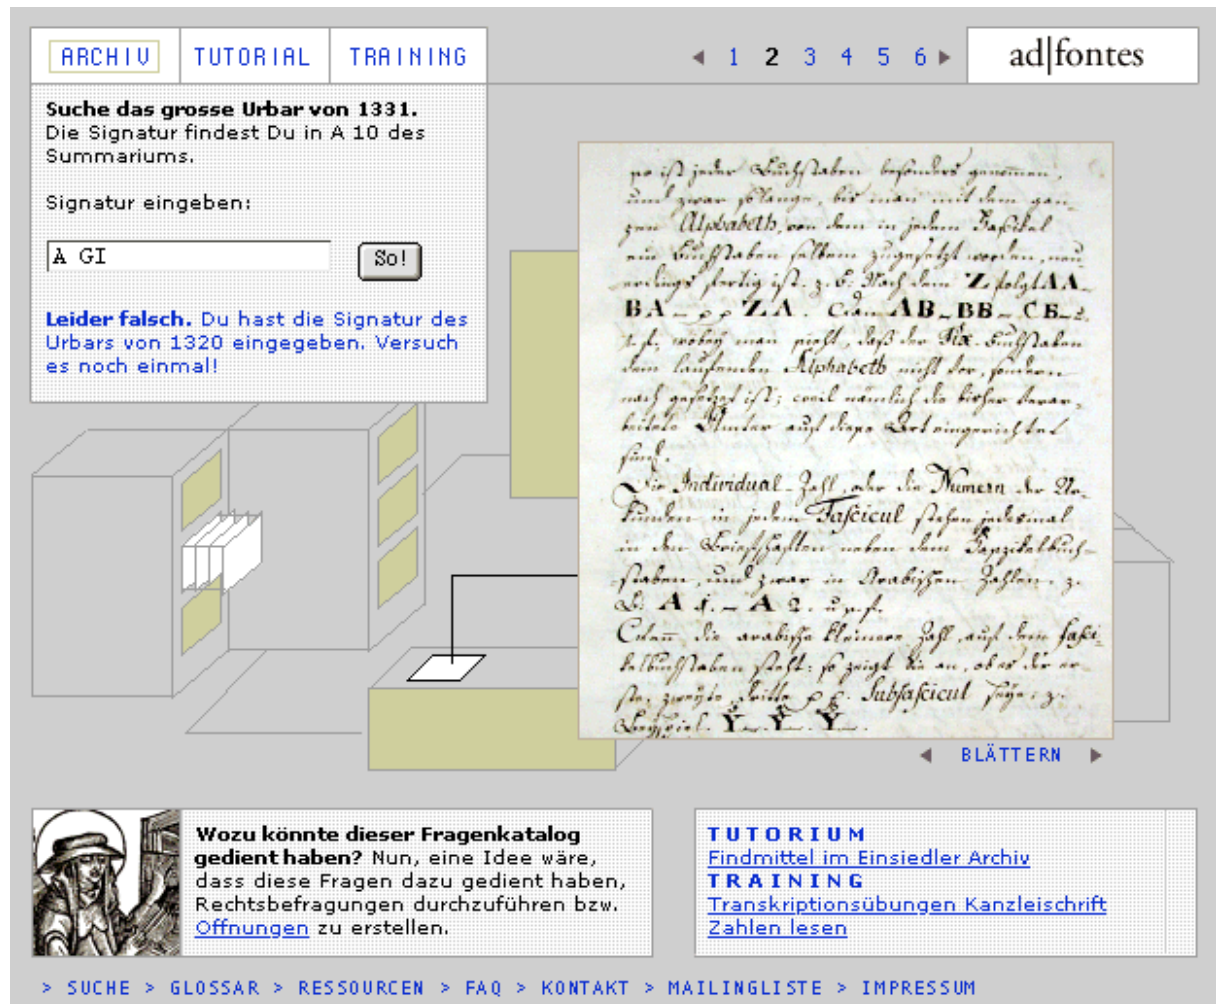 ARCHIV TUTORIAL TRAINING
1 2 3 4 5 6
ad|fontes
Suche das grosse Urbar von 1331.
Die Signatur findest Du in A 10 des
Summariums.
Signatur eingeben:
A GI
So!
Leider falsch. Du hast die Signatur des
Urbars von 1320 eingegeben. Versuch
es noch einmal!
so ist jeder Buchstaben besonders genommen,
und zwar so lange, bis man mit dem gan-
zen Alphabeth, von dem in jedem Faszikel
ein Buchstaben selbem zugesetzt worden, neu-
erdings fertig ist. z. B. Nach dem Z folgt AA-
BA - ZA. Dann AB - BB - CB -
man sieht, daß der Buchstaben
dem laufenden Alphabeth nicht vor, sondern
nach gesetzet ist; weil nämlich die bisher verar-
beitete Ämter auf diese Art eingerichtet
sind.
Die Individual-Zahl, oder die Numern der Ur-
kunden in jedem Fascicul stehen jedesmal
in den Briefschaften neben dem buch-
staben, und zwar in Arabischen Zahlen. z.
B. A 1. - A 2. u. s. f.
Wenn die arabische kleinere Zahl auf dem fasci-
kelbuchstaben steht: so zeigt sie an, ob es der er-
ste, zweyte, dritte Subfascicul seye. z.
Beyspiel. Y. Y. Y.
BLÄTTERN
Wozu könnte dieser Fragenkatalog
gedient haben? Nun, eine Idee wäre,
dass diese Fragen dazu gedient haben,
Rechtsbefragungen durchzuführen bzw.
Offnungen zu erstellen.
TUTORIUM
Findmittel im Einsiedler Archiv
TRAINING
Transkriptionsübungen Kanzleischrift
Zahlen lesen
> SUCHE > GLOSSAR > RESSOURCEN > FAQ > KONTAKT > MAILINGLISTE > IMPRESSUM